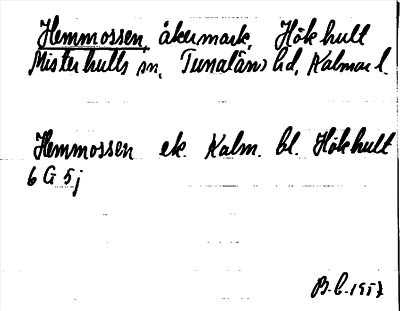 Hemmossen, åkermark, Hökhult
Misterhults sn, Tunaläns hd, Kalmar l.
Hemmossen ek. Kalm. bl. Hökhult
6 G 5 j
B.L. 1957